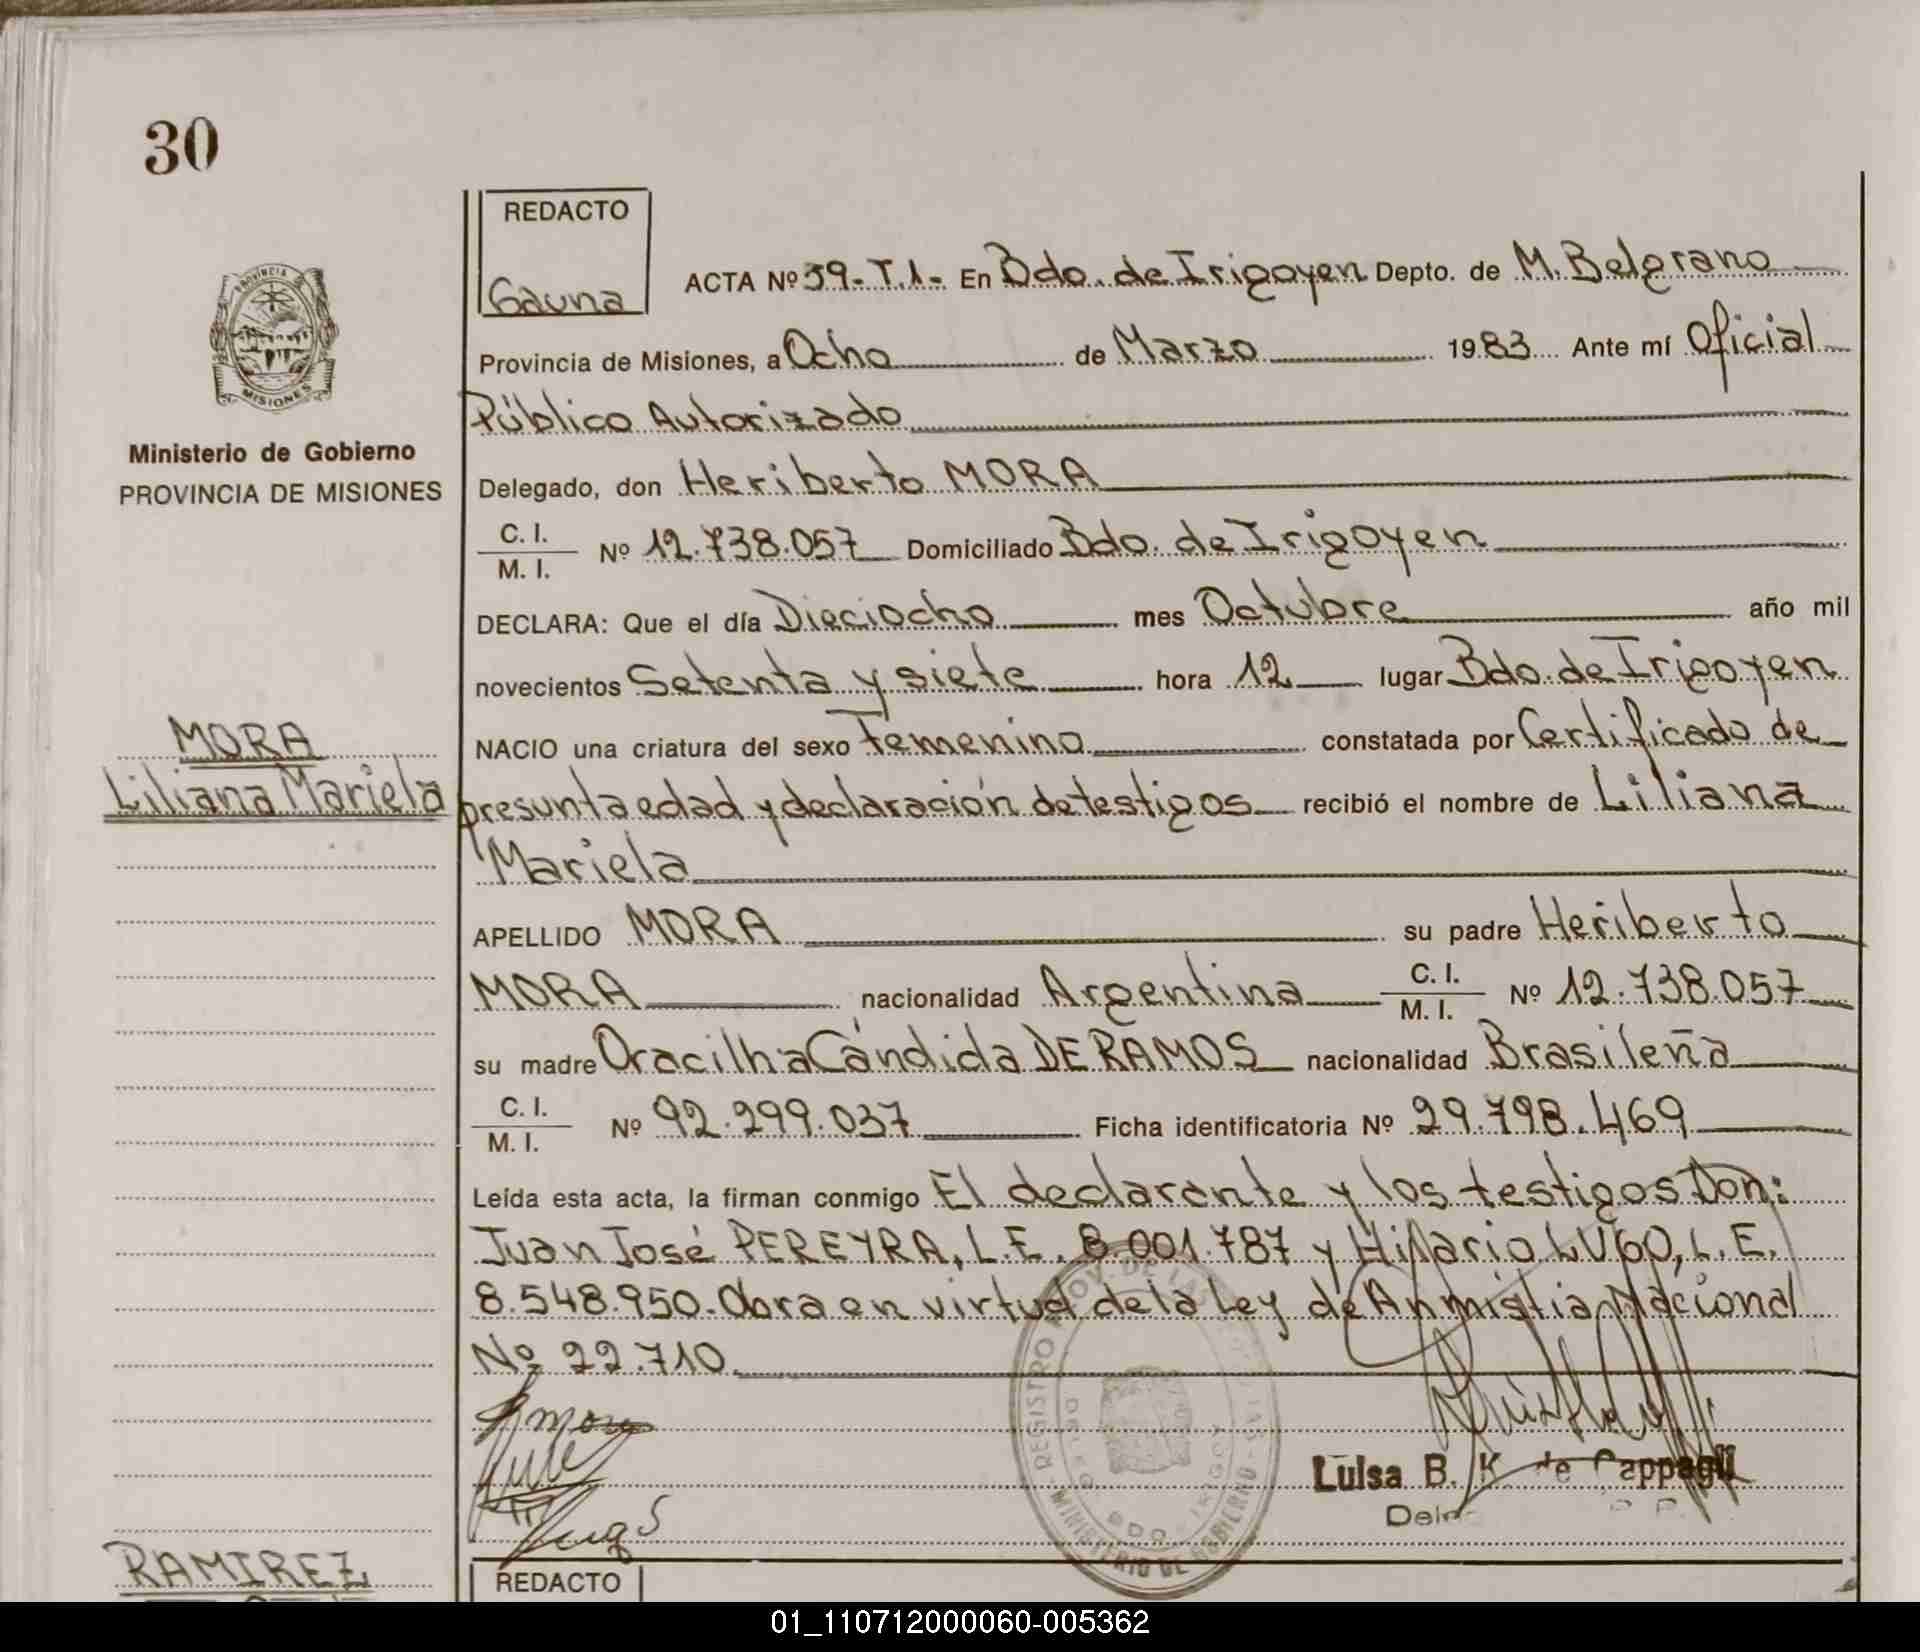 30
REDACTO
Gauna
ACTA Nº 59-T.1- En Bdo. de Irigoyen Depto. de M. Belgrano
Provincia de Misiones, a Ocho de Marzo 1983 Ante mí Oficial
Público Autorizado
Delegado, don Heriberto MORA
C. I.
M. I.
Nº 12.738.057 Domiciliado Bdo. de Irigoyen
DECLARA: Que el día Dieciocho mes Octubre año mil
novecientos Setenta y siete hora 12 lugar Bdo. de Irigoyen
NACIO una criatura del sexo Femenino constatada por Certificado de
presunta edad y declaración de testigos recibió el nombre de Liliana
Mariela
APELLIDO MORA su padre Heriberto
MORA nacionalidad Argentina C. I.
M. I.
Nº 12.738.057
su madre Oracilha Cándida DE RAMOS nacionalidad Brasileña
C. I.
M. I.
Nº 92.299.037 Ficha identificatoria Nº 29.798.469
Leída esta acta, la firman conmigo El declarante y los testigos Don:
Juan José PEREYRA, L.E. 8.001.787 y Hilario LUGO, L.E.
8.548.950. Obra en virtud de la Ley de Anmistia Nacional
Nº 22.710.
PROVINCIA
MISIONES
Ministerio de Gobierno
PROVINCIA DE MISIONES
MORA
Liliana Mariela
Luisa B. K. de Cappagli
REGISTRO PROV. DE LAS
MINISTERIO DE GOBIERNO
RAMIREZ
REDACTO
01_110712000060-005362